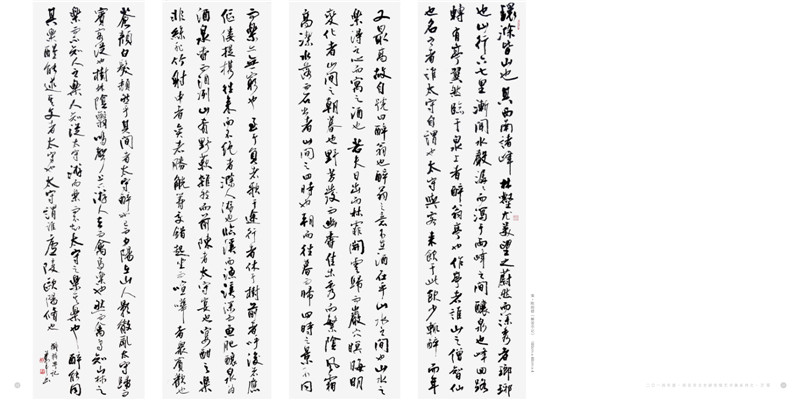 環滁皆山也其西南諸峰林壑尤美望之蔚然而深秀者瑯琊
也山行六七里漸聞水聲潺潺而瀉于兩峰之間釀泉也峰回路
轉有亭翼然臨于泉上者醉翁亭也作亭者誰山之僧智仙
也名之者誰太守自謂也太守與客來飲于此飲少輒醉而年
又最高故自號曰醉翁也醉翁之意不在酒在乎山水之間也山水之
樂得之心而寓之酒也若夫日出而林霏開雲歸而巖穴暝晦明
變化者山間之朝暮也野芳發而幽香佳木秀而繁陰風霜
高潔水落而石出者山間之四時也朝而往暮而歸四時之景不同
而樂亦無窮也至于負者歌于途行者休于樹前者呼後者應
傴僂提攜往來而不絕者滁人游也臨溪而漁溪深而魚肥釀泉為
酒泉香而酒洌山肴野蔌雜然而前陳者太守宴也宴酣之樂
非絲非竹射中者奕者勝觥籌交錯起坐而喧嘩者眾賓歡也
蒼顏白髮頹然乎其間者太守醉也已而夕陽在山人影散亂太守歸而
賓客從也樹林陰翳鳴聲上下游人去而禽鳥樂也然而禽鳥知山林之
樂而不知人之樂人知從太守游而樂而不知太守之樂其樂也醉能同
其樂醒能述以文者太守也太守謂誰廬陵歐陽修也
醉翁亭記